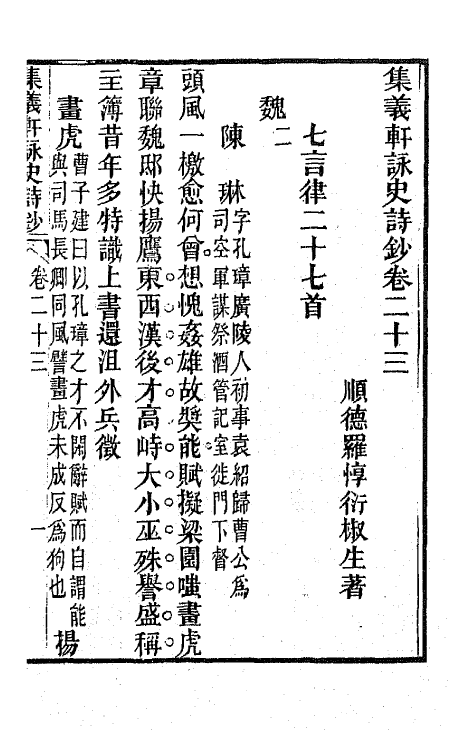 集義軒詠史詩鈔卷二十三
順德羅惇衍椒生著
七言律二十七首
魏二
陳琳字孔璋廣陵人初事袁紹歸曹公爲
司空軍謀祭酒管記室徙門下督
頭風一檄愈何曾想愧姦雄故奬能賦擬梁園嗤畫虎
章聯魏邸快揚鷹東西漢後才高峙大小巫殊譽盛稱
主簿昔年多特識上書還沮外兵徵
畫虎曹子建曰以孔璋之才不閑辭賦而自謂能
與司馬長卿同風譬畫虎未成反爲狗也
揚
集義軒詠史詩鈔
卷二十三
一